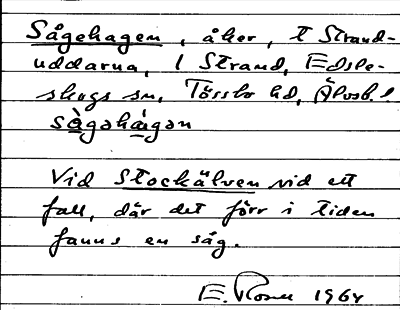 Sågehagen, åker, t Strand-
uddarna, i Strand, Edsle-
skogs sn, Tössbo hd, Älvsb. l
sàgəhágən
Vid Stockälven vid ett
fall, där det förr i tiden
fanns en såg.
E. 1964